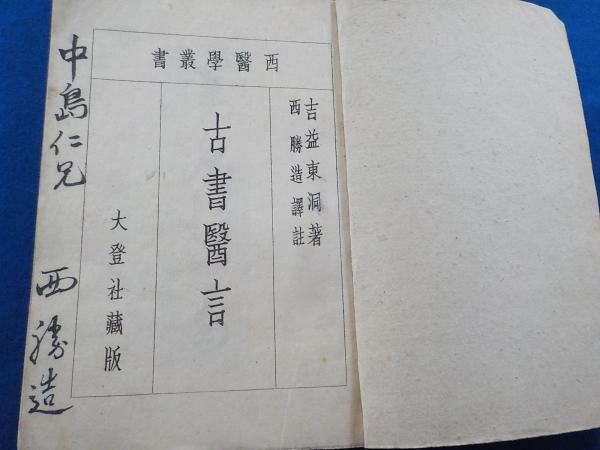 西醫學叢書
吉益東洞著
西勝造譯註
古書醫言
大登社藏版
中島仁兄
西勝造